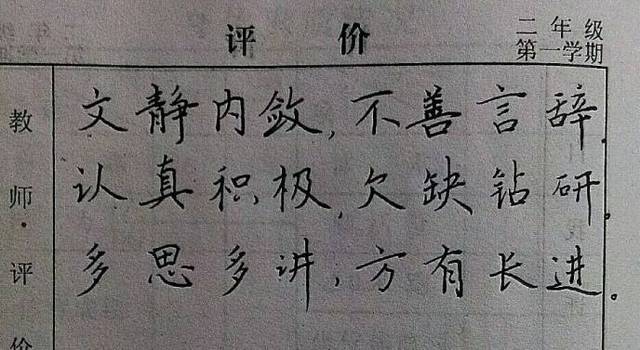 评价
二年级
第一学期
教师·评价
文静内敛,不善言辞.
认真积极,欠缺钻研。
多思多讲,方有长进。